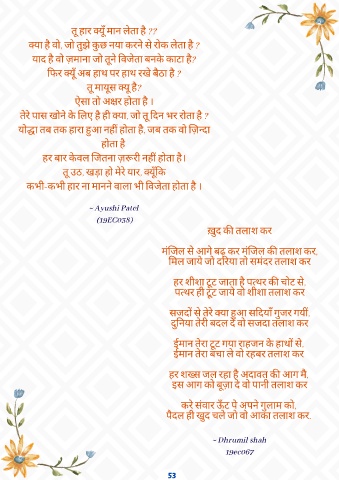 तू हार क्यूँ मान लेता है ??
क्या है वो, जो तुझे कुछ नया करने से रोक लेता है ?
याद है वो ज़माना जो तूने विजेता बनके काटा है?
फिर क्यूँ अब हाथ पर हाथ रखे बैठा है ?
तू मायूस क्यूँ है?
ऐसा तो अक्षर होता है ।
तेरे पास खोने के लिए है ही क्या, जो तू दिन भर रोता है ?
योद्धा तब तक हारा हुआ नहीं होता है, जब तक वो ज़िन्दा
होता है
हर बार केवल जितना ज़रूरी नहीं होता है।
तू उठ, खड़ा हो मेरे यार, क्यूँकि
कभी-कभी हार ना मानने वाला भी विजेता होता है ।
~ Ayushi Patel
(19EC058)
ख़ुद की तलाश कर
मंजिल से आगे बढ़ कर मंजिल की तलाश कर,
मिल जाये जो दरिया तो समंदर तलाश कर
हर शीशा टूट जाता है पत्थर की चोट से,
पत्थर ही टूट जाये वो शीशा तलाश कर
सजदों से तेरे क्या हुआ सदियाँ गुजर गयीं,
दुनिया तेरी बदल दे वो सजदा तलाश कर
ईमान तेरा टूट गया राहजन के हाथों से,
ईमान तेरा बचा ले वो रहबर तलाश कर
हर शख्स जल रहा है अदावत की आग मै,
इस आग को बूझा दे वो पानी तलाश कर
करे संवार ऊँट पे अपने गुलाम को,
पैदल ही खुद चले जो वो आका तलाश कर.
~ Dhrumil shah
19ec067
53